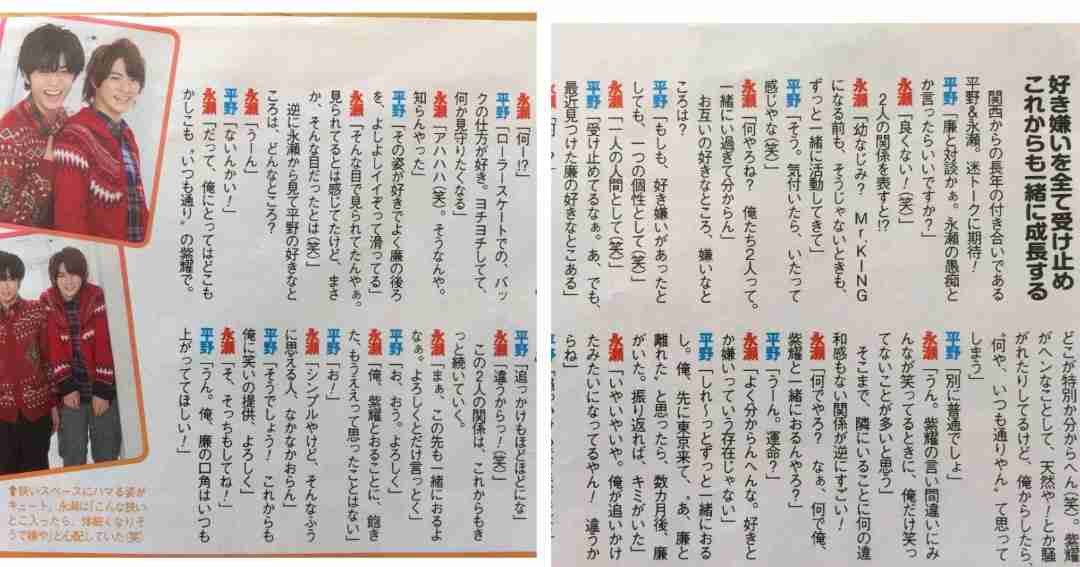 好き嫌いを全て受け止め
これからも一緒に成長する
関西からの長年の付き合いである
平野&永瀬。迷トークに期待!
平野「廉と対談かぁ。永瀬の愚痴と
か言ったらいいですか?」
永瀬「良くない!(笑)」
2人の関係を表すと!?
永瀬「幼なじみ? Mr.KING
になる前も、そうじゃないときも、
ずっと一緒に活動してきて」
平野「そう。気付いたら、いたって
感じやな(笑)」
永瀬「何やろね? 俺たち2人って。
一緒にい過ぎて分からん」
お互いの好きなところ、嫌いなと
ころは?
平野「もしも、好き嫌いがあったと
しても、一つの個性として(笑)」
永瀬「一人の人間として(笑)」
平野「受け止めてるなぁ。あ、でも、
最近見つけた廉の好きなとこある」
永瀬「何!?」
平野「ローラースケートでの、バッ
クの仕方が好き。ヨチヨチしてて、
何か見守りたくなる」
永瀬「アハハハ(笑)。そうなんや。
知らんやった」
平野「その姿が好きでよく廉の後ろ
を、よしよしイイぞって滑ってる」
永瀬「そんな目で見られてたんやぁ。
見られてるとは感じてたけど、まさ
か、そんな目だったとは(笑)」
逆に永瀬から見て平野の好きなと
ころは、どんなところ?
永瀬「うーん」
平野「ないんかい!」
永瀬「だって、俺にとってはどこも
かしこも〝いつも通り〟の紫耀で。
どこが特別か分からへん(笑)。紫耀
がヘンなことして、天然や!とか騒
がれたりしてるけど、俺からしたら、
〝何や、いつも通りやん〟て思って
しまう」
平野「別に普通でしょ」
永瀬「うん。紫耀の言い間違いにみ
んなが笑ってるときに、俺だけ笑っ
てないことが多いと思う」
そこまで、隣にいることに何の違
和感もない関係が逆にすごい!
永瀬「何でやろ? なぁ、何で俺、
紫耀と一緒におるんやろ?」
平野「うーん。運命?」
永瀬「よく分からんへんな。好きと
か嫌いっていう存在じゃない」
平野「しれ〜っとずっと一緒におる
し。俺、先に東京来て、〝あ、廉と
離れた〟と思ったら、数カ月後、廉
がいた。振り返れば、キミがいた」
永瀬「いやいやいや。俺が追いかけ
たみたいになってるやん! 違うか
らね」
平野「追っかけもほどほどにな」
永瀬「違うからっ!(笑)」
この2人の関係は、これからもき
っと続いていく。
永瀬「まぁ、この先も一緒におるよ
なぁ。よろしくとだけ言っとく」
平野「お、おう。よろしく」
永瀬「俺、紫耀とおることに、飽き
た、もうええって思ったことはない」
平野「お!」
永瀬「シンプルやけど、そんなふう
に思える人、なかなかおらん」
平野「そうでしょう! これからも
俺に笑いの提供、よろしく」
永瀬「そ、そっちもしてね!」
平野「うん。俺、廉の口角はいつも
上がっててほしい!」
⬆狭いスペースにハマる姿が
キュート。永瀬は「こんな狭い
とこ入ったら、体細くなりそ
うで嫌や」と心配していた(笑)